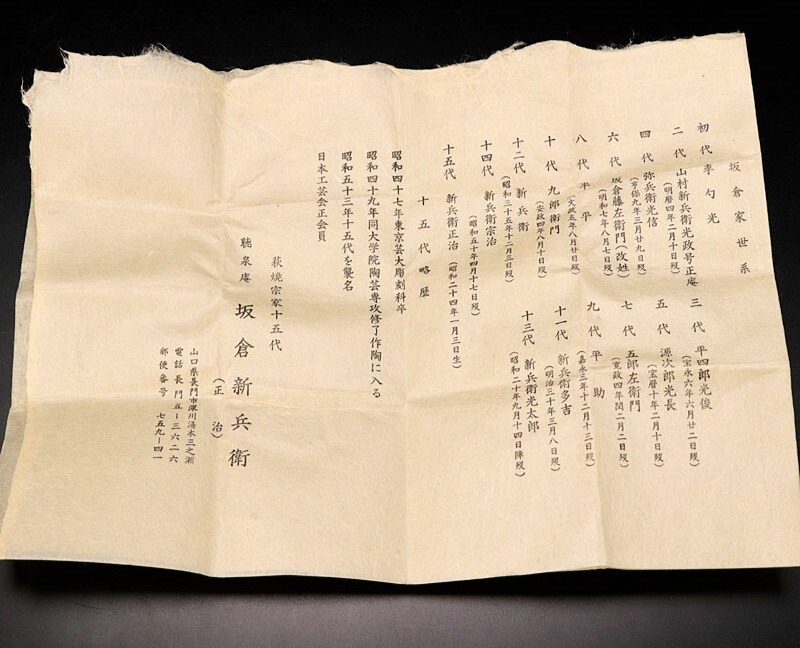 坂倉家世系
初代 李勺光
二代 山村新兵衛光政号正庵
(明暦四年二月十日歿)
三代 平四郎光俊
(宝永六年六月廿二日歿)
四代 弥兵衛光信
(享保九年三月廿九日歿)
五代 源次郎光長
(宝暦十年二月十日歿)
六代 坂倉藤左衛門(改姓)
(明和七年八月七日歿)
七代 五郎左衛門
(寛政四年閏二月二日歿)
八代 平平
(文政五年八月廿日歿)
九代 平助
(嘉永三年十二月十三日歿)
十代 九郎衛門
(安政四年八月十日歿)
十一代 新兵衛多吉
(明治三十年三月八日歿)
十二代 新兵衛
(昭和三十五年十二月三日歿)
十三代 新兵衛光太郎
(昭和二十年九月十四日陣歿)
十四代 新兵衛治
(昭和五十年四月十七日歿)
十五代 新兵衛正治(昭和二十四年一月三日生)
十五代略歴
昭和四十七年東京芸大彫刻科卒
昭和四十九年同大学院陶芸専攻修了作陶に入る
昭和五十三年十五代を襲名
日本工芸会正会員
萩焼宗家十五代
聴泉庵 坂倉新兵衛
(正治)
山口県長門市深川湯本三之瀬
電話長門五-三六二六
郵便番号 七五九-四一